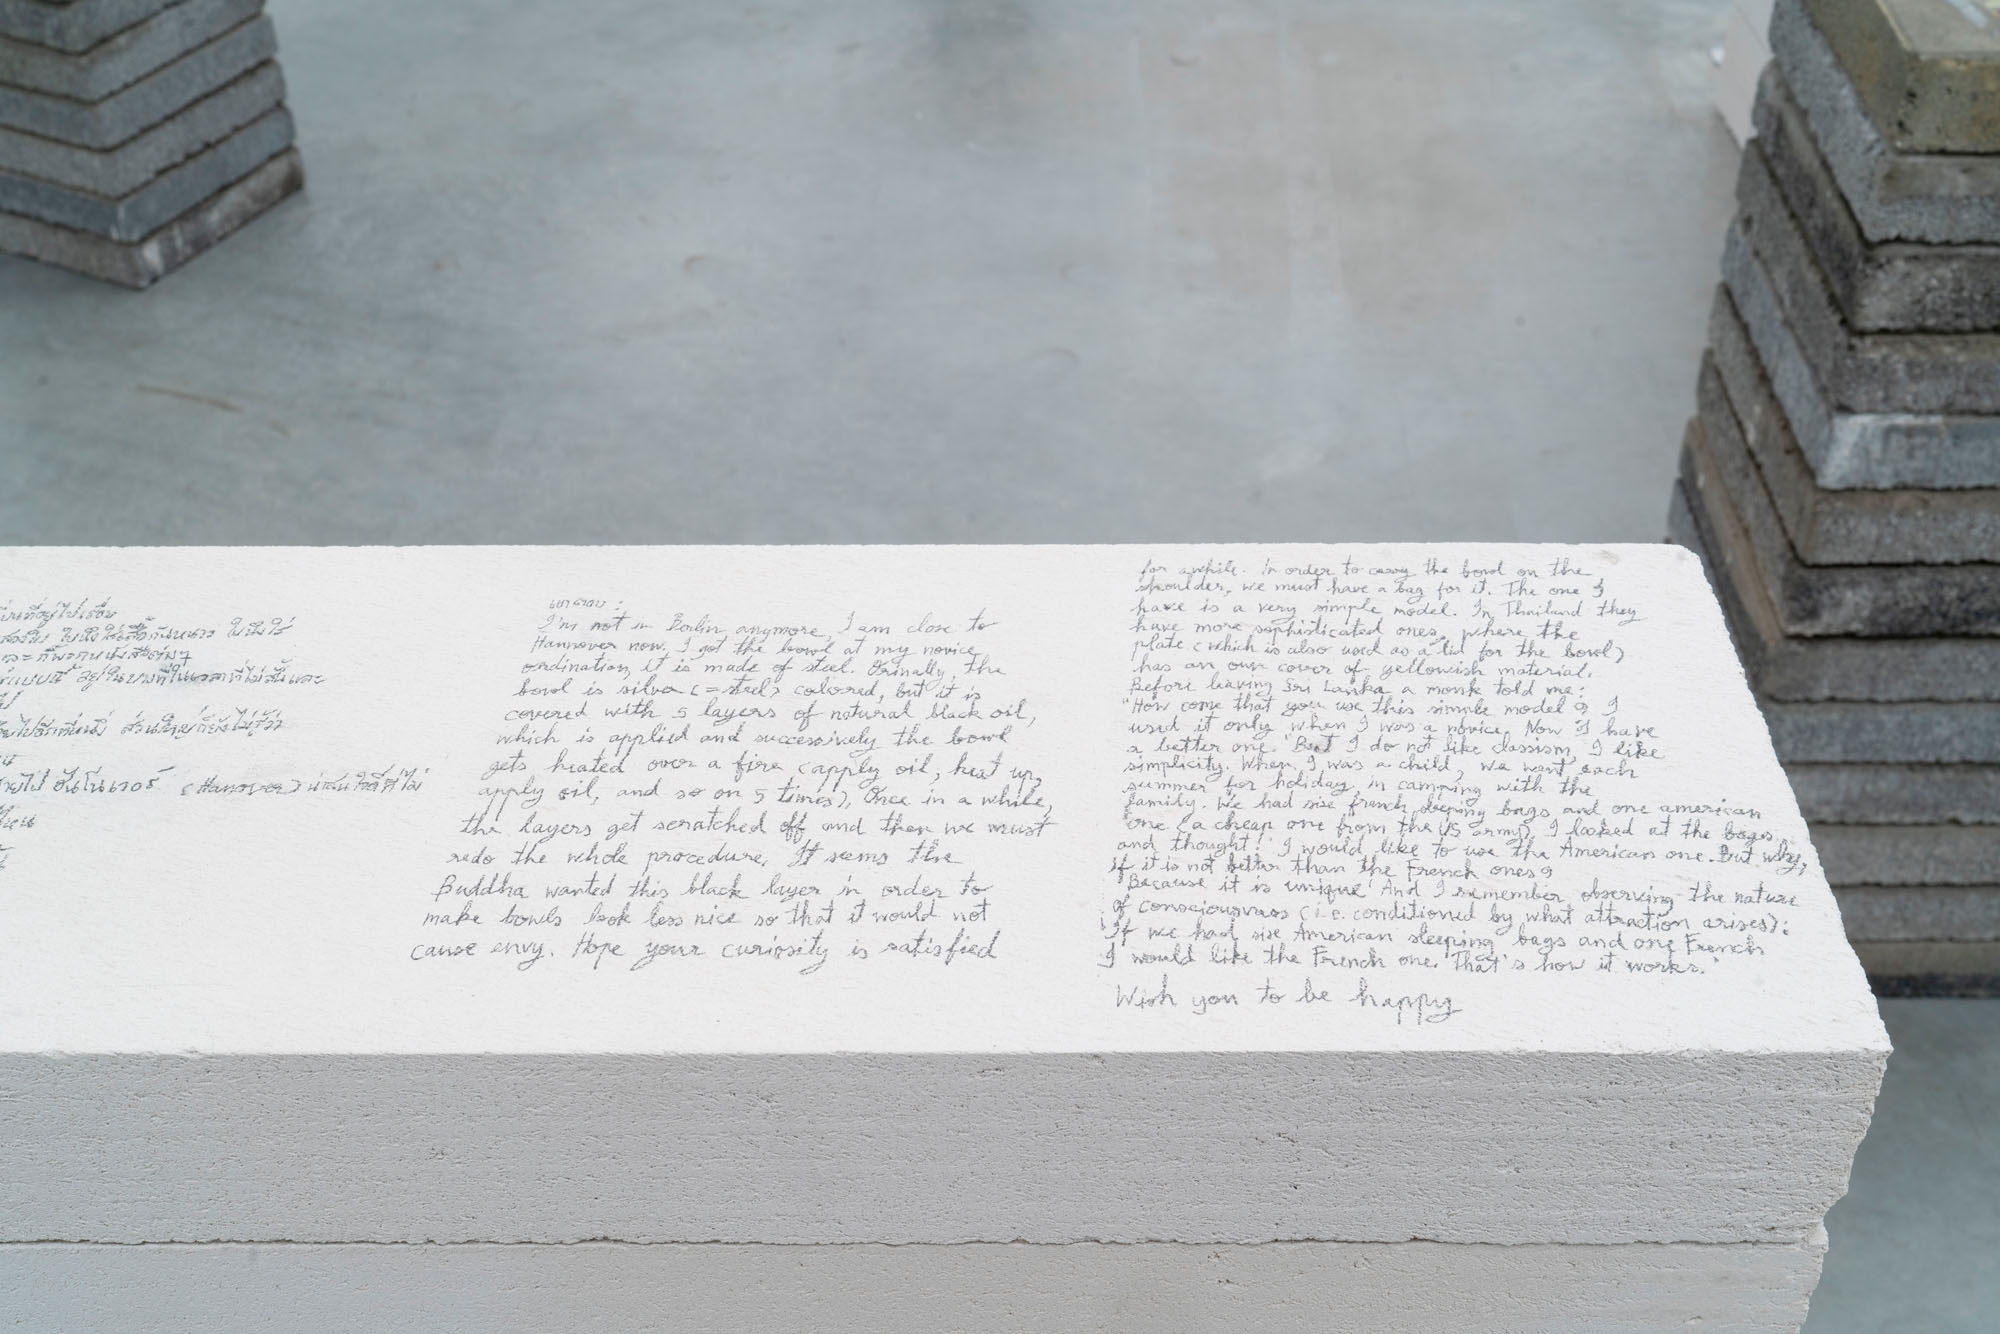 สองใบ ใบนึงใส่เสื้อกันหนาว ใบนึงใส่
อยู่ในบางที่ในเวลาที่ไม่สั้นและ
ส่วนใหญ่ก็ยังไม่รู้ว่า
ฮันโนเวอร์ (Hanover) น่าสนใจดีที่ไม่
เขาตอบ :
I'm not in Berlin anymore, I am close to
Hannover now. I got the bowl at my novice
ordination, it is made of steel. Orinally, the
bowl is silver (= steel) colored, but it is
covered with 5 layers of natural black oil,
which is applied and successively the bowl
gets heated over a fire (apply oil, heat up,
apply oil, and so on 5 times). Once in a while,
the layers get scratched off and then we must
redo the whole procedure. It seems the
Buddha wanted this black layer in order to
make bowls look less nice so that it would not
cause envy. Hope your curiosity is satisfied
for awhile. In order to carry the bowl on the
shoulder, we must have a bag for it. The one I
have is a very simple model. In Thailand they
have more sophisticated ones, where the
plate (which is also used as a lid for the bowl)
has an own cover of yellowish material.
Before leaving Sri Lanka a monk told me:
"How come that you use this simple model? I
used it only when I was a novice. Now I have
a better one." But I do not like classism, I like
simplicity. When I was a child, we went each
summer for holiday, in camping with the
family. We had six french sleeping bags and one american
one (a cheap one from the US army). I looked at the bags
and thought: 'I would like to use the American one. But why,
if it is not better than the French ones?
Because it is unique' And I remember observing the nature
of consciousness (i.e. conditioned by what attraction arises):
'If we had six American sleeping bags and one French
I would like the French one. That's how it works.'
Wish you to be happy